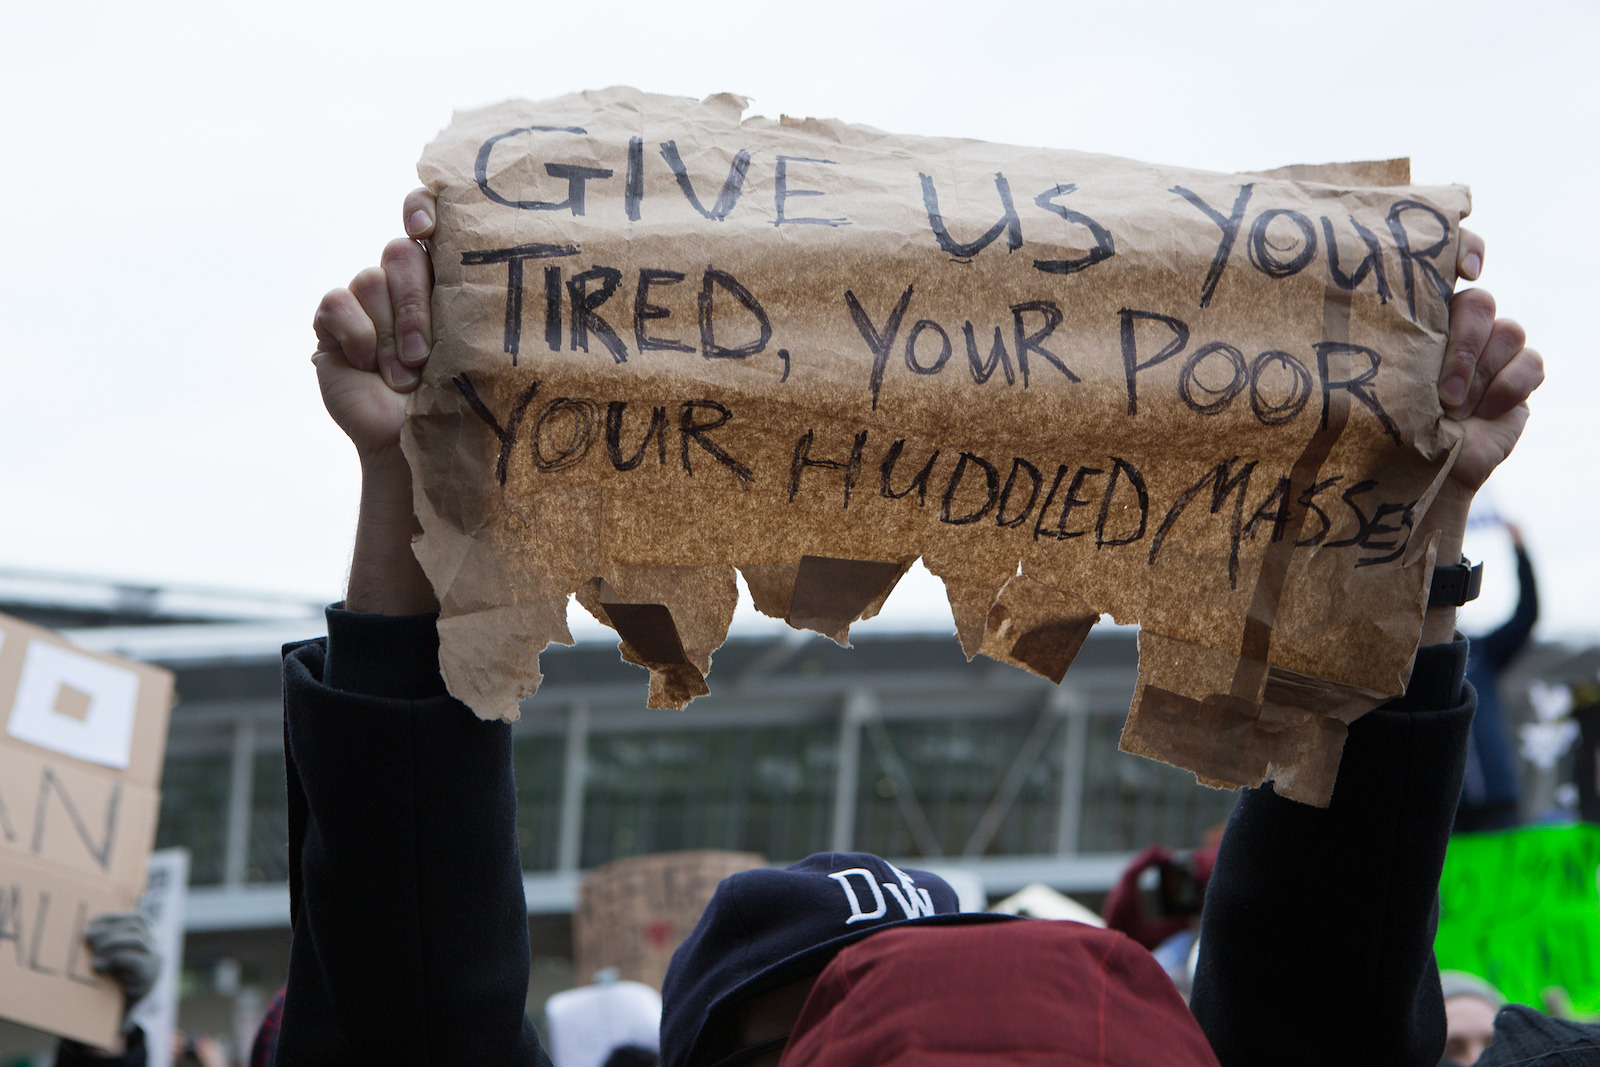 GIVE US YOUR
TIRED, YOUR POOR
YOUR HUDDLED MASSES
DW
AN
ALL